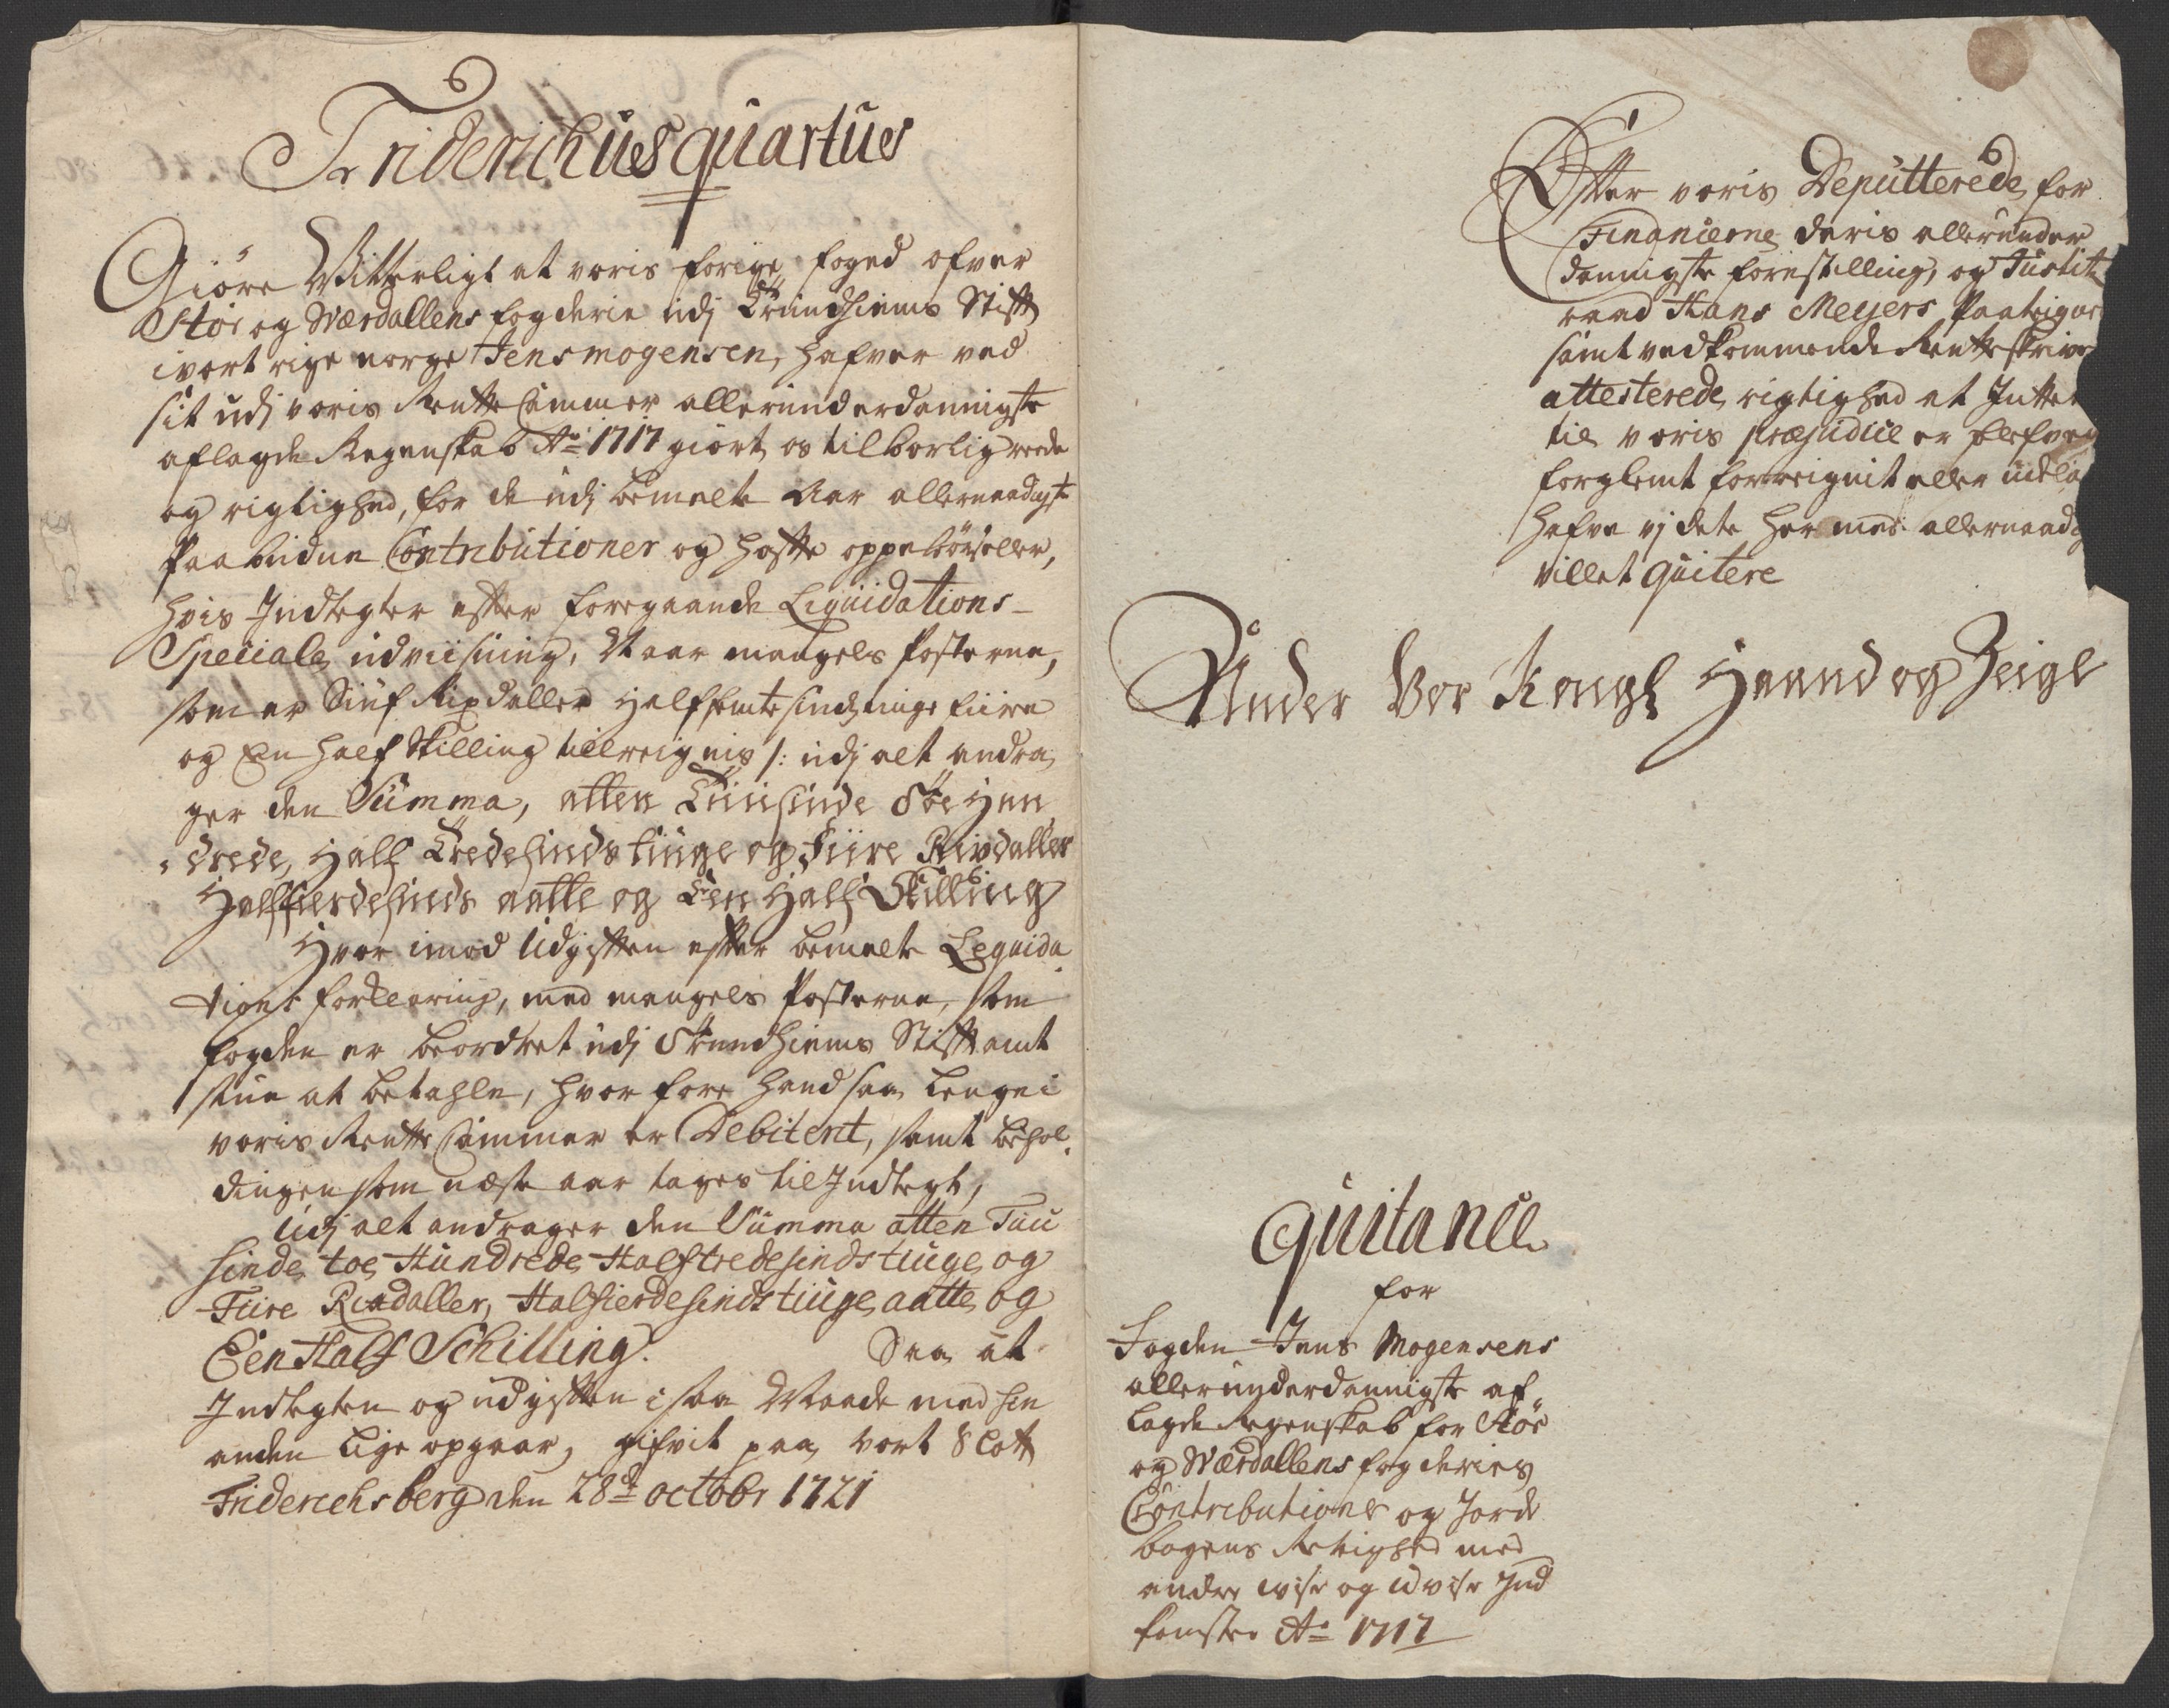 Friderichus quartus
Giöre Vitterligt at voris forige foged ofver
Stör og Værdallens fogderie udj Trundhiems Stift
ivort rige norge Jens mogensen, hafver ved
sit udj voris RentteCammer allerunderdannigste
aflagde Regenskab Ao 1717 giort os tilborlig reede
og rigtighed, for de udj bemelte Aar allernaadigste
Paabudne Contributioner og hafte oppebörseller,
hvis Indtegter efter foregaaende Liquidations
Speciale udviisning, Naar mangels Posterne,
som er Siuf Rixdaller Halfsemtesindstiuge fiire
og Een half Skilling tillreignis /: udj alt andra
ger den Summa, atten Tuusinde Toe Hun
drede, Half Tredesindstiuge og Fiire Rixdaller
Halffierdesinds aatte og Een Half Skilling
Hvor imod Udgiften efter bemelte Leqvida
tions forklaring, med mangels Posterne, som
fogden er beordret udj Trundhiems Stiftamt
stue at betahle, hvor fore hand saa lenge i
voris RentteCammer er Debitert, samt behol
dingen som næste aar tages til Indtegt,
Udj alt andrager den Summa atten Tuu
sinde toe Hundrede Halftredesindstiuge og
Fiire Rixdaller, Halfierdesindstiuge aatte og
Een Half Schilling. Saa at
Indtegten og udgiften i saa Maade med sin
anden lige opgaar, gifvit paa vort Slott
Friderichsberg den 28de octobr 1721
Efter voris Deputterede for
Financierne deris allerunder
dannigste forestilling, og Justitz
raad Hans Meyers Paateigne
samt vedkommende Rentteskrive
attesterede rigtighed at Intte
til voris præjudice er blefven
forglemt foreignit eller udela
hafve vj dete her med allernaadig
villet quitere
Under Vor Kongl Haand og Zeigl
Quitance
for
Fogden Jens Mogensens
allerunderdannigste af
lagde Regenskab for Stör
og Værdallens fogderies
Contributioner og Jorde
bogens Retighed med
andre visse og uvisse Ind
komster Ao 1717